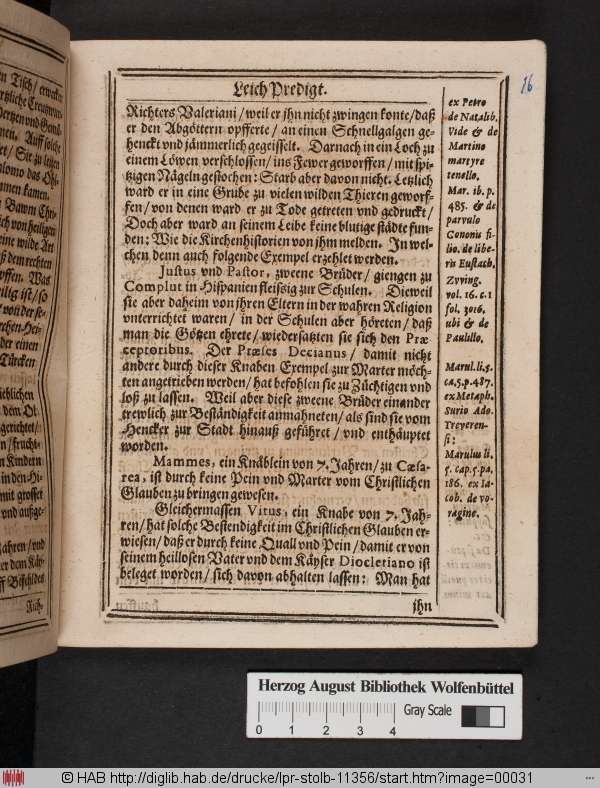 Leich Predigt.
16
Richters Valeriani/weil er jhn nicht zwingen konte/daß
er den Abgöttern opfferte/an einen Schnellgalgen ge-
henckt und jämmerlich gegeisselt. Darnach in ein Loch zu
einem Löwen verschlossen/ins Fewer geworffen/mit spi-
tzigen Nägeln gestochen: Starb aber davon nicht. Letzlich
ward er in eine Grube zu vielen wilden Thieren geworf-
fen/von denen ward er zu Tode getreten vnd gedruckt/
Doch aber ward an seinem Leibe keine blutige städte fun-
den: Wie die Kirchenhistorien von jhm melden. In wel-
chen denn auch folgende Exempel erzehlet werden.
Justus vnd Pastor, zweene Brüder/giengen zu
Complut in Hispanien fleissig zur Schulen. Dieweil
sie aber daheim von jhren Eltern in der wahren Religion
vnterrichtet waren/in der Schulen aber höreten/daß
man die Götzen ehrete/wiedersatzten sie sich den Præ
ceptoribus. Der Præses Decianus/damit nicht
andere durch dieser Knaben Exempel zur Marter möch-
ten angetrieben werden/hat befohlen sie zu Züchtigen vnd
loß zu lassen. Weil aber diese zweene Brüder einander
trewlich zur Beständigkeit anmahneten/als sind sie vom
Hencker zur Stadt hinauß geführet/vnd enthäuptet
worden.
Mammes, ein Knäblein von 7. Jahren/zu Cæsa-
rea, ist durch keine Pein vnd Marter vom Christlichen
Glauben zu bringen gewesen.
Gleichermassen Vitus, ein Knabe von 7. Jah-
ren/hat solche Bestendigkeit im Christlichen Glauben er-
wiesen/daß er durch keine Quall vnd Pein/damit er von
seinem heillosen Vater vnd dem Käyser Diocletiano ist
beleget worden/sich davon abhalten lassen: Man hat
jhn
ex Petro
de Natalib.
Vide & de
Martino
martyre
tenello.
Mar. ib. p.
485. & de
parvulo
Cononis fi-
lio. de libe-
ris Eustach.
Zvving.
vol. 16. c. 1
fol. 3016.
ubi & de
Paulillo.
Marul. li. 5.
ca. 5. p. 487.
ex Metaph.
Surio Ado.
Treveren-
si:
Marulus li.
5. cap. 5. pa.
186. ex Ia-
cob. de vo-
ragine.
Herzog August Bibliothek Wolfenbüttel
Gray Scale
0 1 2 3 4
© HAB http://diglib.hab.de/drucke/lpr-stolb-11356/start.htm?image=00031